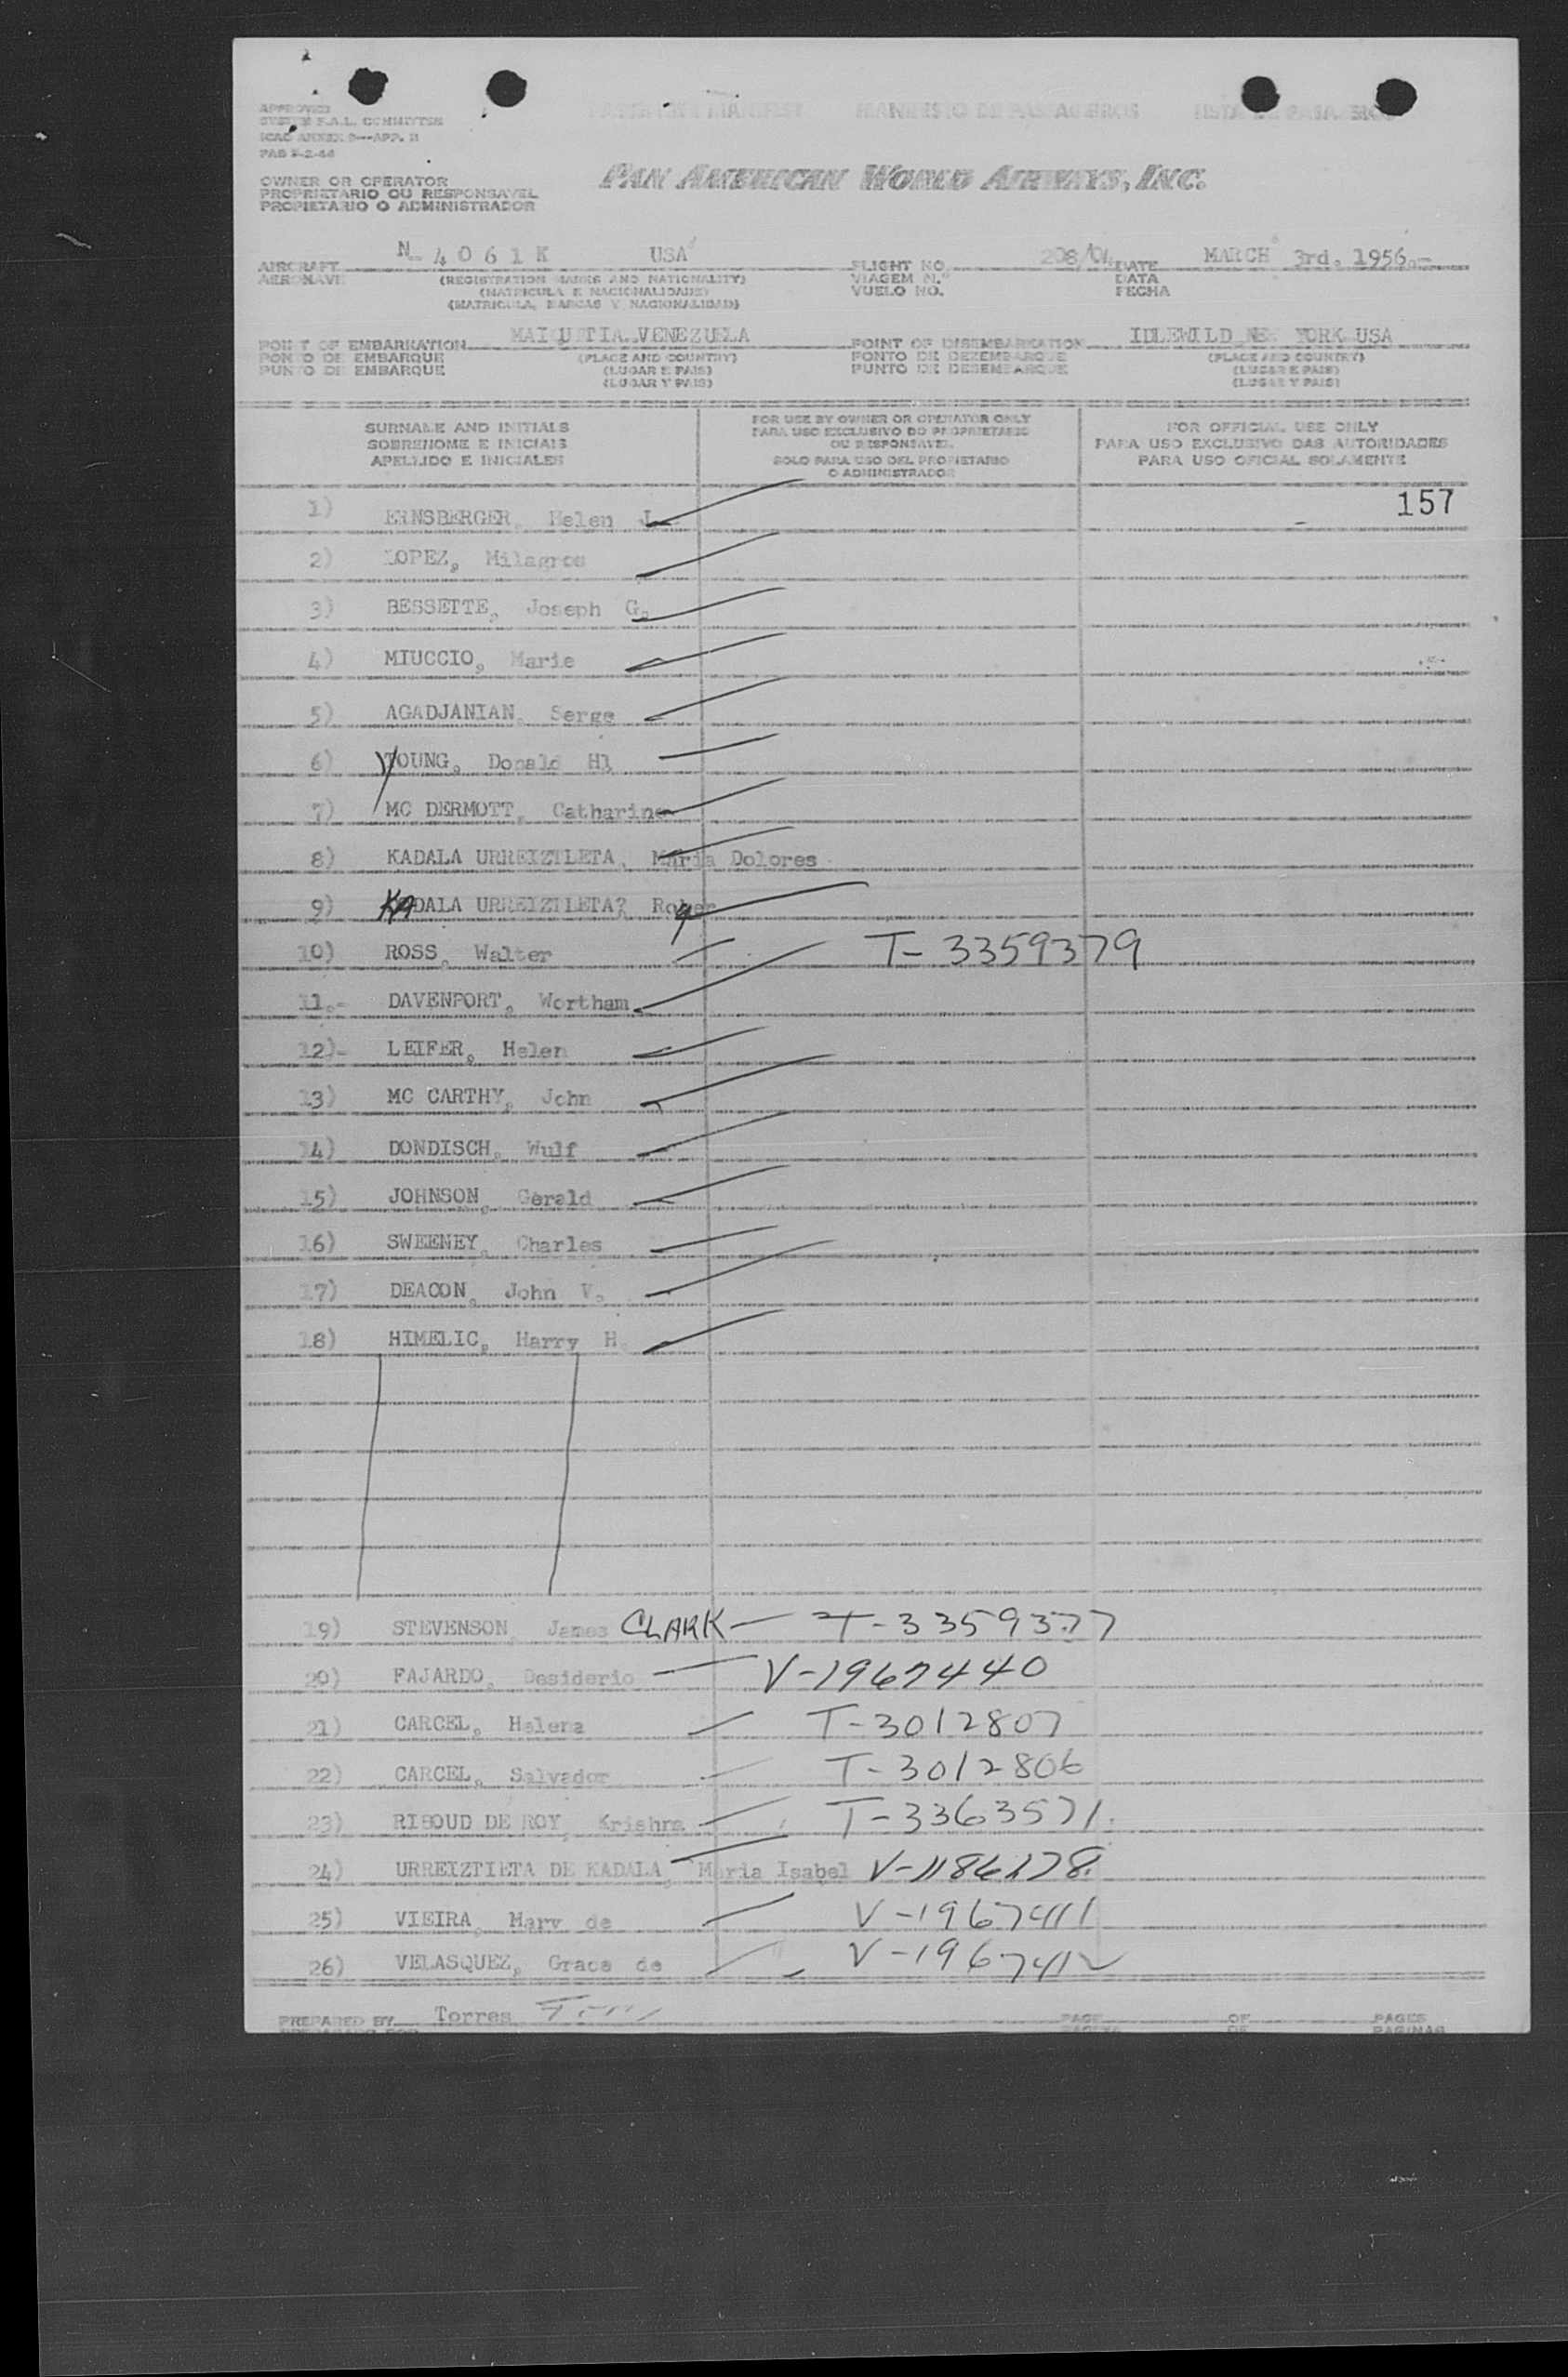 PASSENGER MANIFEST MANIFESTO DE PASSAGEIROS LISTA DE PASAJEROS
APPROVED
F.A.L. COMMITTEE
ICAO ANNEX 9—APP. B
OWNER OR OPERATOR
PROPRIETARIO OU RESPONSAVEL
PROPIETARIO O ADMINISTRADOR
PAN AMERICAN WORLD AIRWAYS, INC.
AIRCRAFT N 4061K USA FLIGHT NO. 208/04 DATE MARCH 3rd. 1956.-
AERONAVE (REGISTRATION MARKS AND NATIONALITY) VIAGEM N.º DATA
(MATRICULA E NACIONALIDADE) VUELO NO. FECHA
(MATRICULA, MARCAS Y NACIONALIDAD)
POINT OF EMBARKATION MAIQUETIA VENEZUELA POINT OF DISEMBARKATION IDLEWILD NEW YORK USA
PONTO DE EMBARQUE (PLACE AND COUNTRY) PONTO DE DESEMBARQUE (PLACE AND COUNTRY)
PUNTO DE EMBARQUE (LUGAR E PAIS) PUNTO DE DESEMBARQUE (LUGAR E PAIS)
(LUGAR Y PAIS) (LUGAR Y PAIS)
SURNAME AND INITIALS
SOBRENOME E INICIAIS
APELLIDO E INICIALES
FOR USE BY OWNER OR OPERATOR ONLY
PARA USO EXCLUSIVO DO PROPRIETARIO
OU RESPONSAVEL
SOLO PARA USO DEL PROPIETARIO
O ADMINISTRADOR
FOR OFFICIAL USE ONLY
PARA USO EXCLUSIVO DAS AUTORIDADES
PARA USO OFICIAL SOLAMENTE
157
1) ERNSBERGER, Helen J.
2) LOPEZ, Milagros
3) BESSETTE, Joseph G.
4) MIUCCIO, Marie
5) AGADJANIAN, Serge
6) YOUNG, Donald Hl
7) MC DERMOTT, Catharine
8) KADALA URREIZTLETA, Maria Dolores
9) KADALA URREIZTLETA? Rober
10) ROSS, Walter T-3359379
11.- DAVENPORT, Wortham
12)- LEIFER, Helen
13) MC CARTHY, John
14) DONDISCH, Wulf
15) JOHNSON, Gerald
16) SWEENEY, Charles
17) DEACON, John V.
18) HIMELIC, Harry H.
19) STEVENSON, James CLARK T-3359377
20) FAJARDO, Desiderio V-1967440
21) CARCEL, Helena T-3012807
22) CARCEL, Salvador T-3012806
23) RIBOUD DE ROY, Krishna T-3363571
24) URREIZTIETA DE KADALA, Maria Isabel
25) VIEIRA, Mary de V-1967411
26) VELASQUEZ, Grace de V-1967412
PREPARED BY Torres PAGE OF PAGES